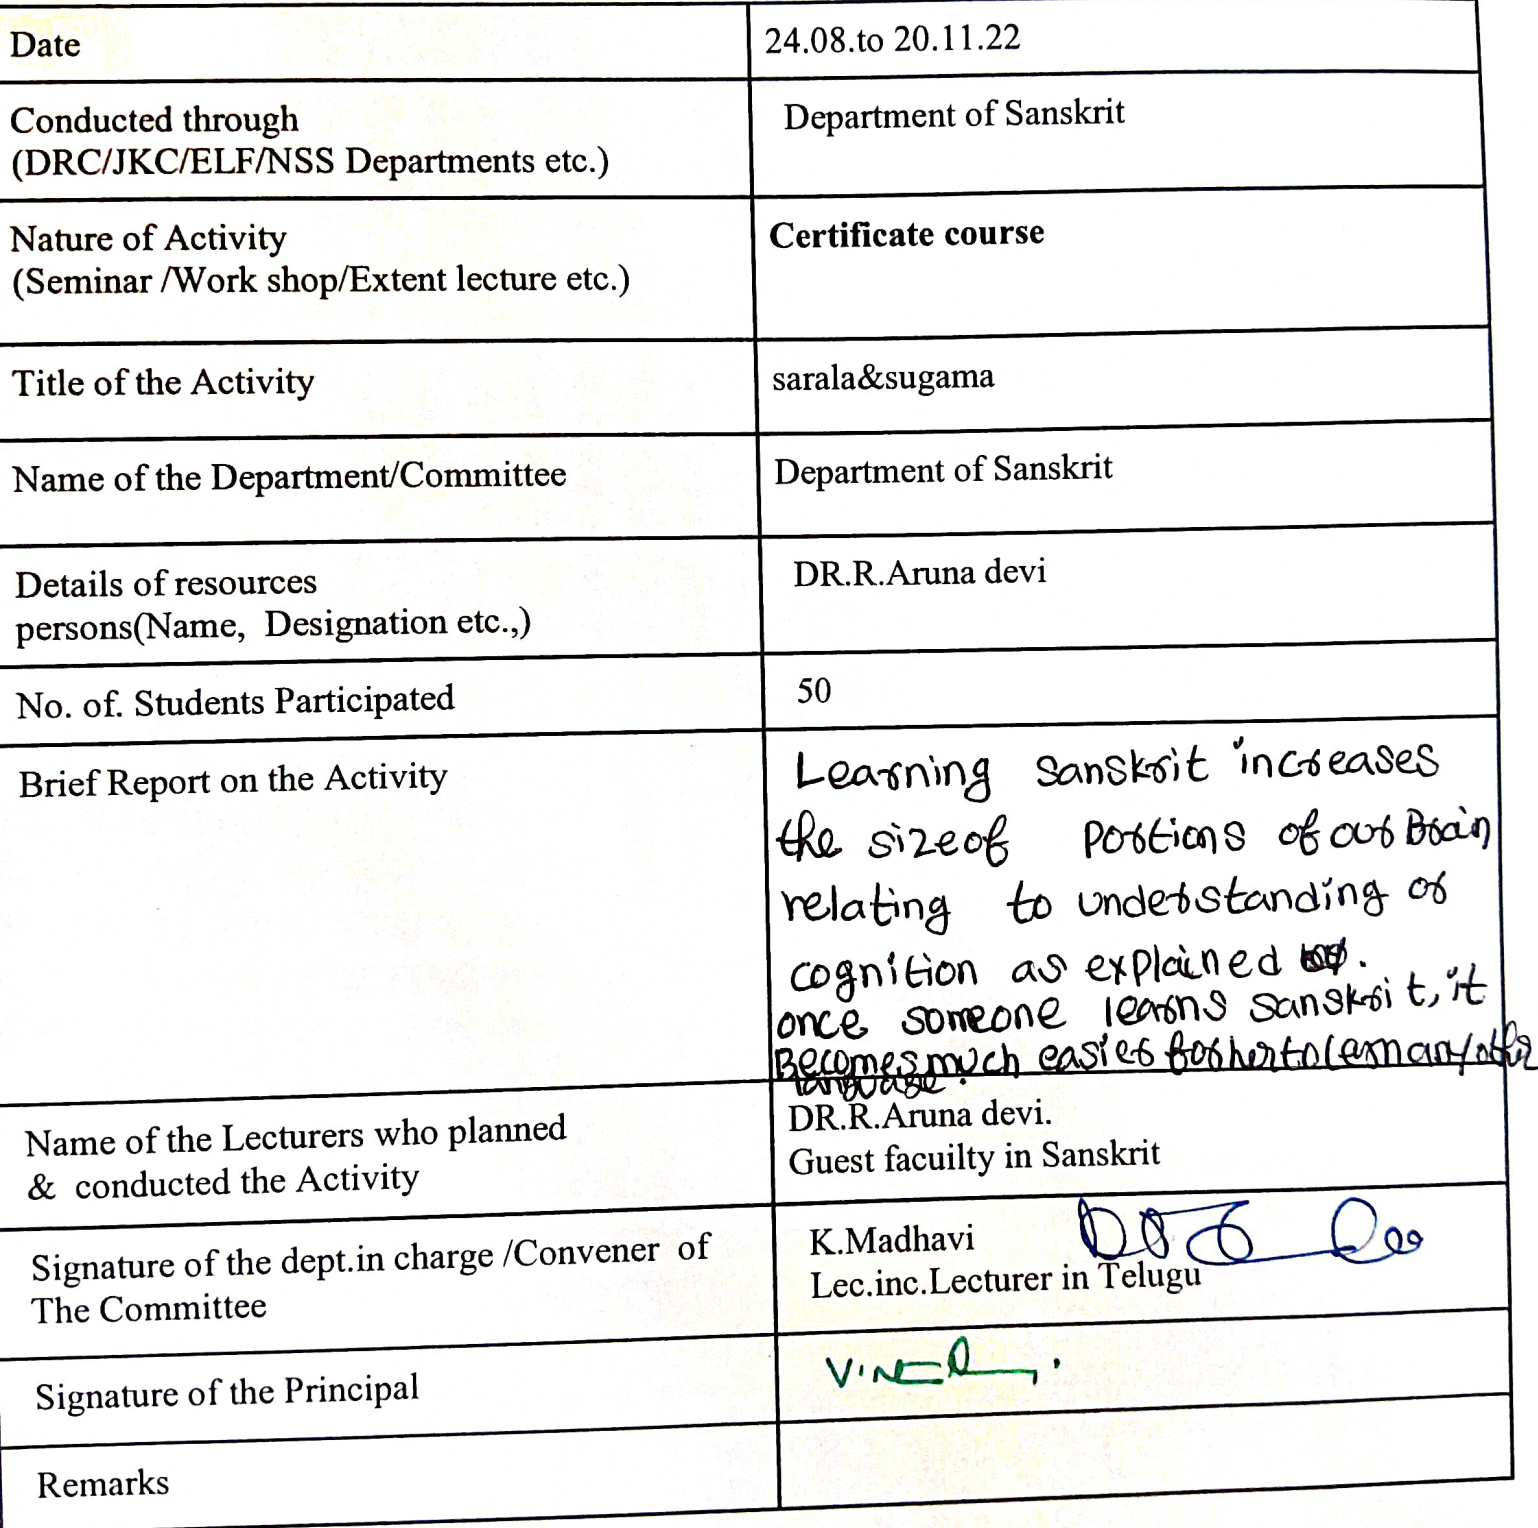 Date
24.08.to 20.11.22
Conducted through
(DRC/JKC/ELF/NSS Departments etc.)
Department of Sanskrit
Nature of Activity
(Seminar /Work shop/Extent lecture etc.)
Certificate course
Title of the Activity
sarala&sugama
Name of the Department/Committee
Department of Sanskrit
Details of resources
persons(Name, Designation etc.,)
DR.R.Aruna devi
No. of. Students Participated
50
Brief Report on the Activity
Learning Sanskrit increases
the sizeof portions of our Brain
relating to understanding or
cognition as explained .
once someone learns Sanskrit, it
Becomes much easier for her to learn any other
language.
Name of the Lecturers who planned
& conducted the Activity
DR.R.Aruna devi.
Guest facuilty in Sanskrit
Signature of the dept.in charge /Convener of
The Committee
K.Madhavi
Lec.inc.Lecturer in Telugu
Signature of the Principal
Remarks